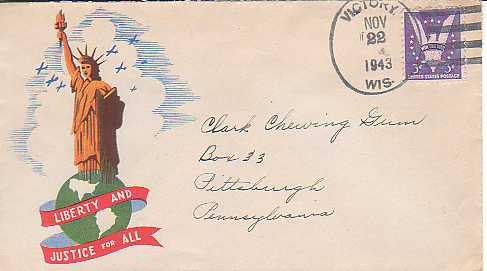 VICTORY,
NOV
22
1943
WIS.
WIN THE WAR
UNITED STATES POSTAGE
3¢ 3¢
Clark Chewing Gum
Box 33
Pittsburgh
Pennsylvania
LIBERTY AND
JUSTICE FOR ALL